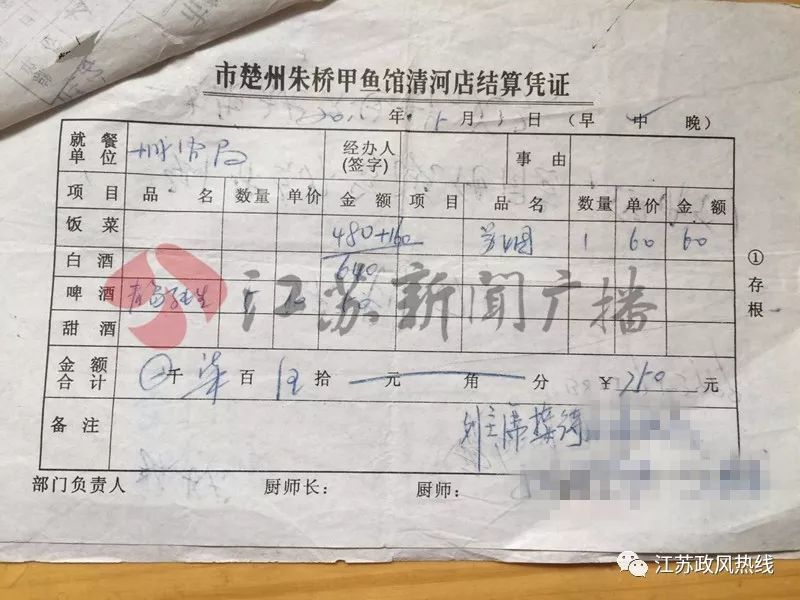 市楚州朱桥甲鱼馆清河店结算凭证
年 月 日 (早 中 晚)
就餐单位 经办人(签字) 事由
项目 品名 数量 单价 金额 项目 品名 数量 单价 金额
饭菜 480+160 1 60 60
白酒 640
啤酒
甜酒
金额合计 千 柒 百 伍 拾 元 角 分 ¥750元
备注 刘主席接待
部门负责人 厨师长: 厨师:
①存根
江苏新闻广播
江苏政风热线